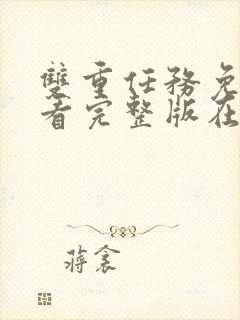 雙重任務免
看完整版在
蔣衾